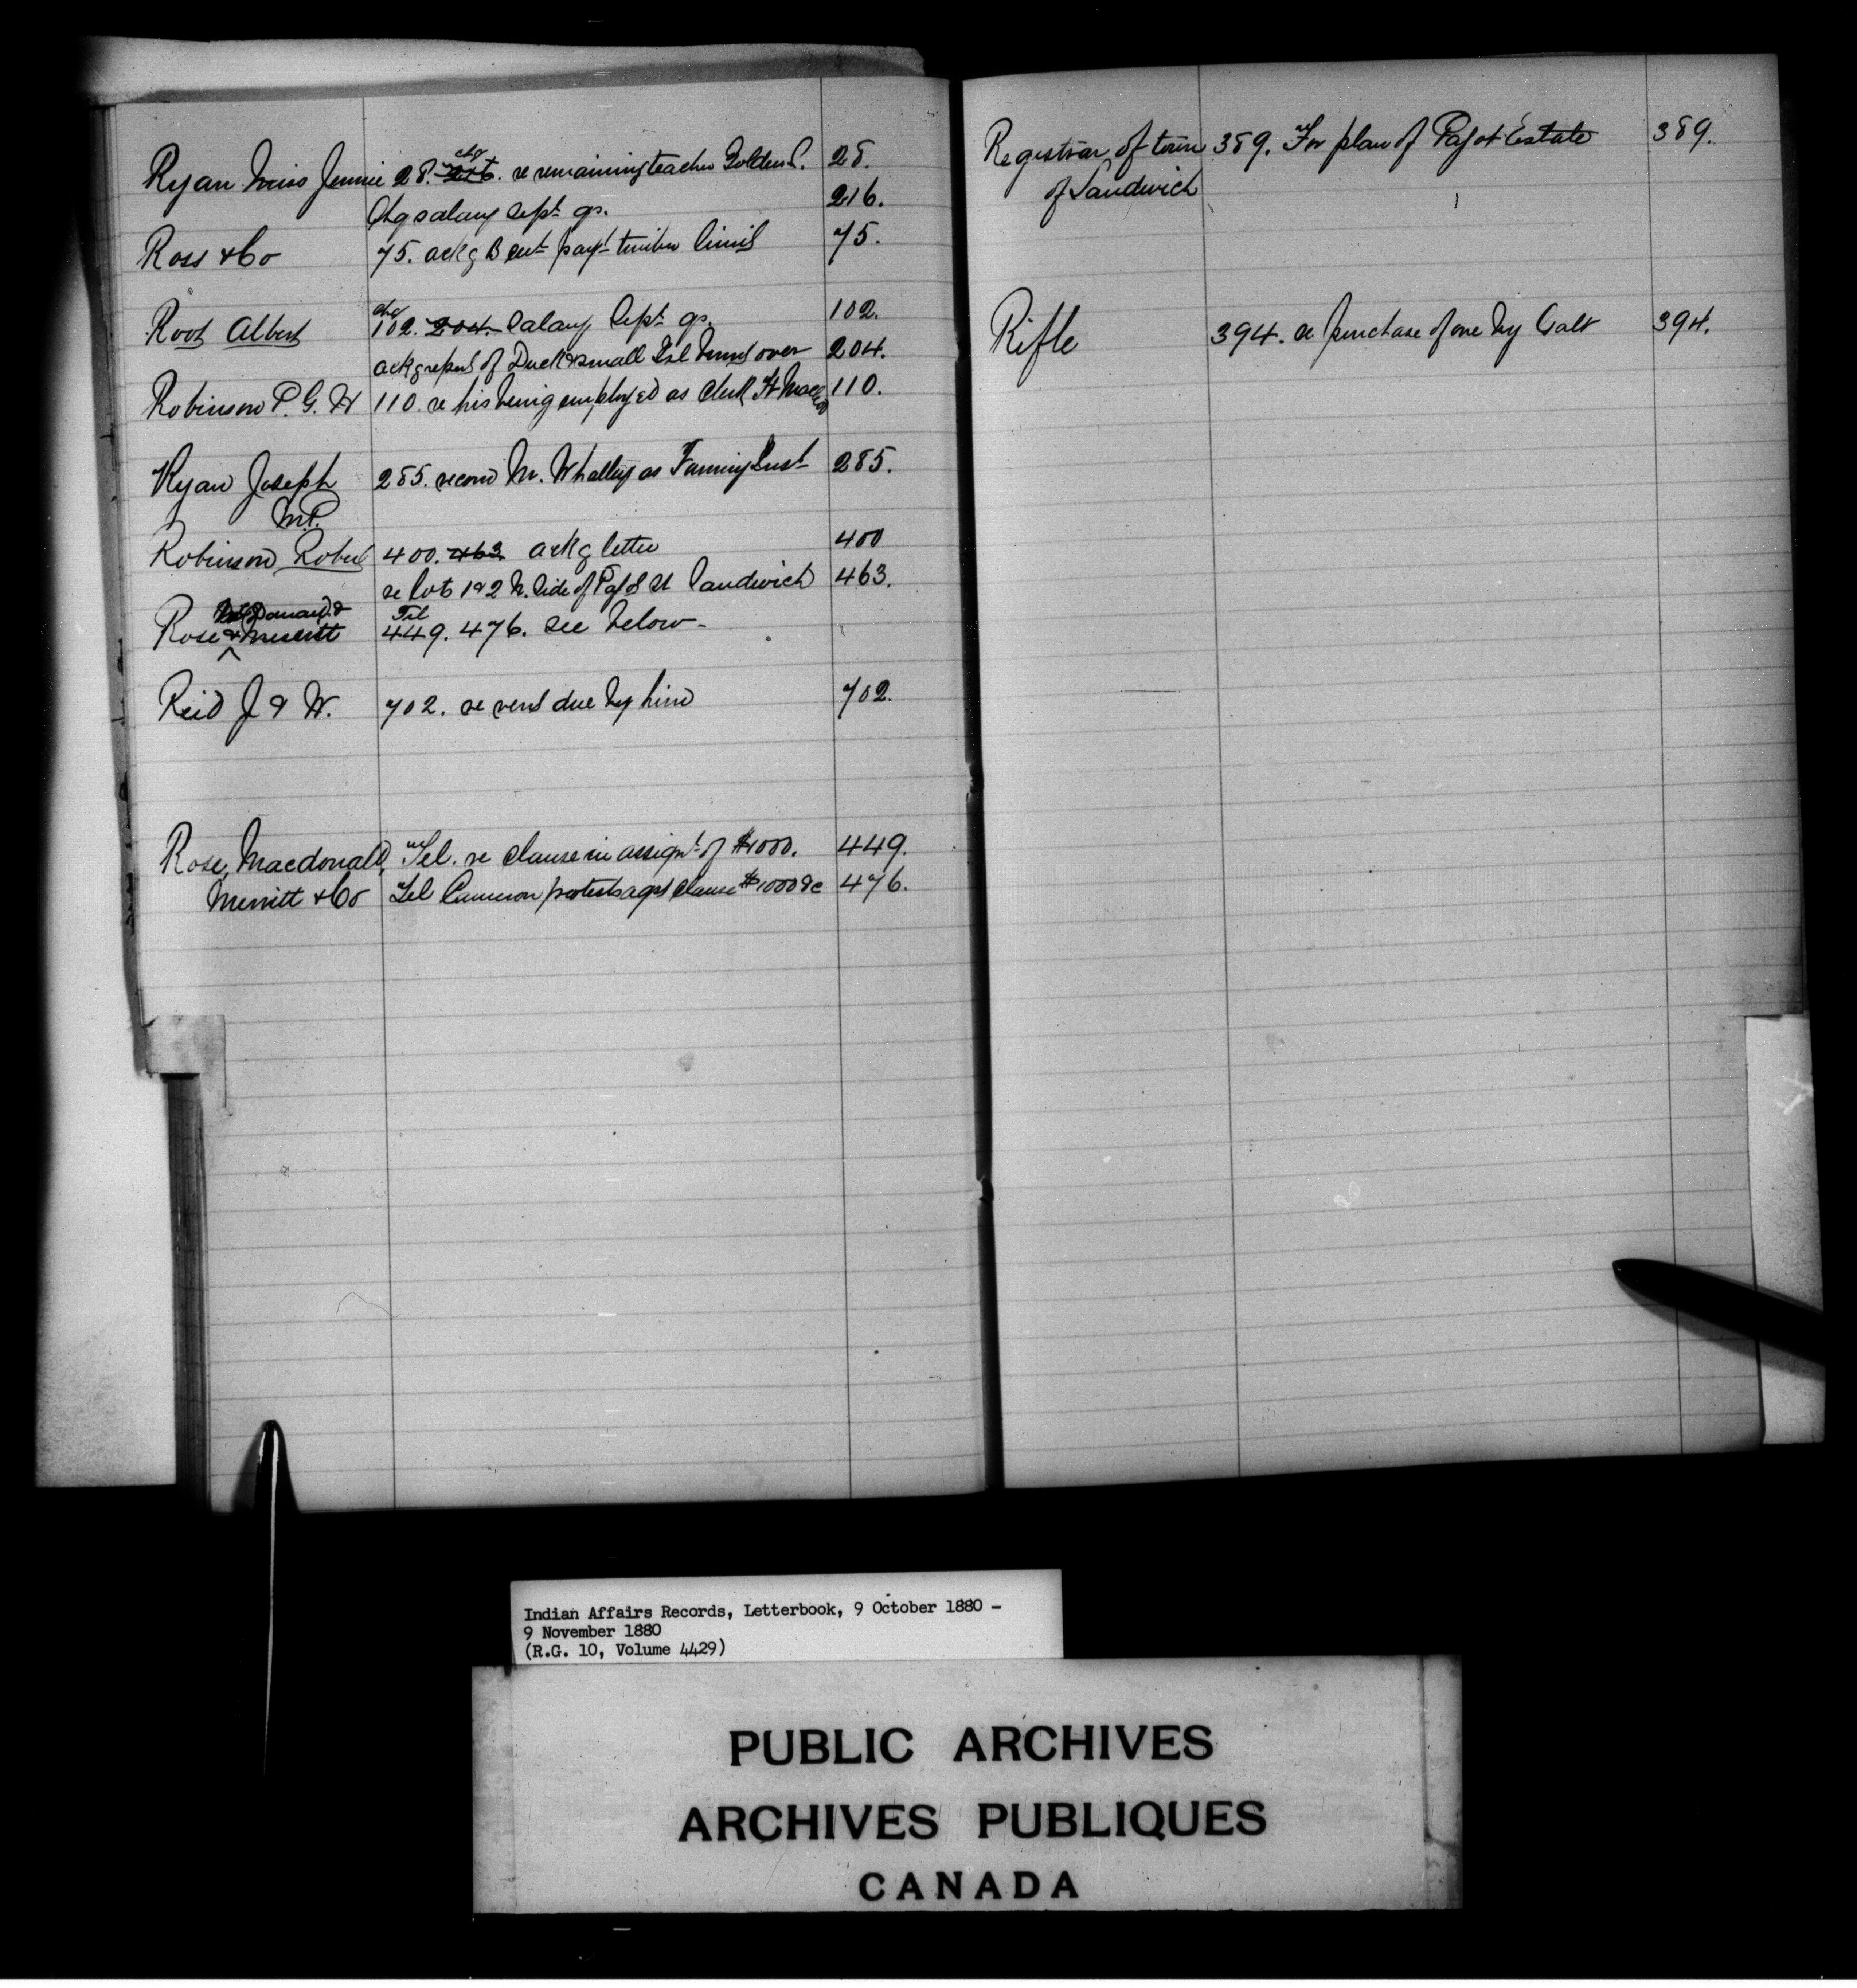 Ryan Miss Jennie 28. chq 216. re remaining teacher Golden L. 28.
Chq salary Sept qr. 216.
Ross & Co 75. ackg B cert payt timber limit 75.
Root Albert 102. chq 204. Salary Sept qr. 102.
ackg report of Duck & small Isl 204.
Robinson P. G. H 110. re his being employed as clerk Ft Macleod 110.
Ryan Joseph 285. recom Mr. Whalley as Farming Inst 285.
M.P.
Robinson Robert 400. 463 ackg letter 400
re Lot 192 N. Side of Pajot St Sandwich 463.
Rose McDonald & Merritt Tel 449. 476. see below -
Reid J & W. 702. re rent due by him 702.
Rose, Macdonald, Tel. re clause in assignt of $1000. 449.
Merritt & Co Tel Cameron protests agst clause $1000 &c 476.
Registrar of town 389. For plan of Pajot Estate 389.
of Sandwich
Rifle 394. re purchase of one by Galt 394.
Indian Affairs Records, Letterbook, 9 October 1880 -
9 November 1880
(R.G. 10, Volume 4429)
PUBLIC ARCHIVES
ARCHIVES PUBLIQUES
CANADA